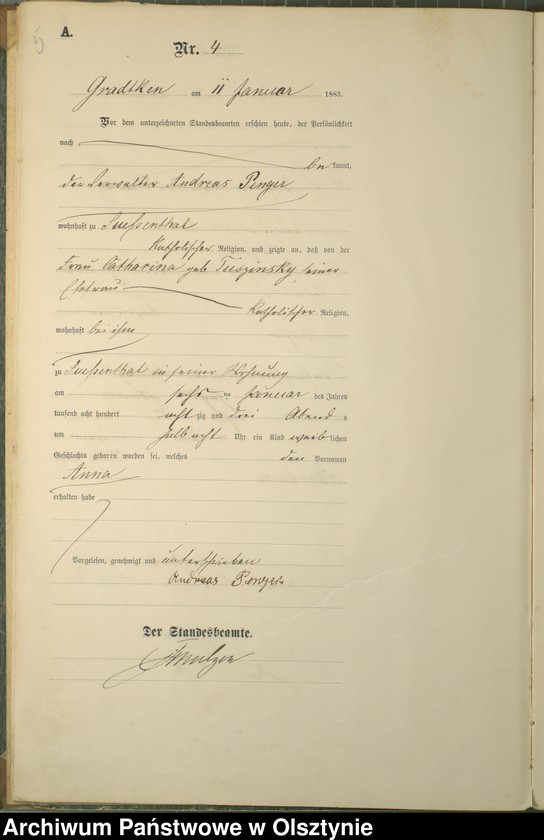 5
A.
Nr. 4
Gradtken am 11 Januar 1883.
Vor dem unterzeichneten Standesbeamten erschien heute, der Persönlichkeit
nach
be kannt,
der Verwalter Andreas Penger
wohnhaft zu Suessenthal
Katholischer Religion, und zeigte an, daß von der
Frau Catharina geb Tuszinsky seiner
Ehefrau
Katholischer Religion,
wohnhaft bei ihm
zu Suessenthal in seiner Wohnung
am sechs ten Januar des Jahres
tausend acht hundert acht zig und drei Abend s
um halb acht Uhr ein Kind weib lichen
Geschlechts geboren worden sei, welches den Vornamen
Anna
erhalten habe
Vorgelesen, genehmigt und unterschrieben
Andreas Penger
Der Standesbeamte.
Archiwum Państwowe w Olsztynie